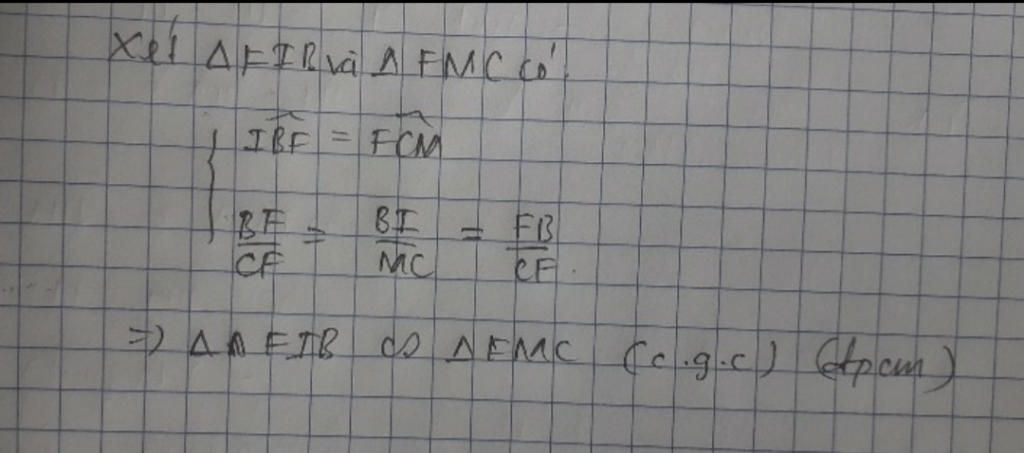 Xét Δ FIB và Δ FMC có:
{ \widehat{IBF} = \widehat{FCM}
BF/CF = BI/MC = FB/CF.
=> Δ FIB ∽ Δ FMC (c.g.c) (đpcm)